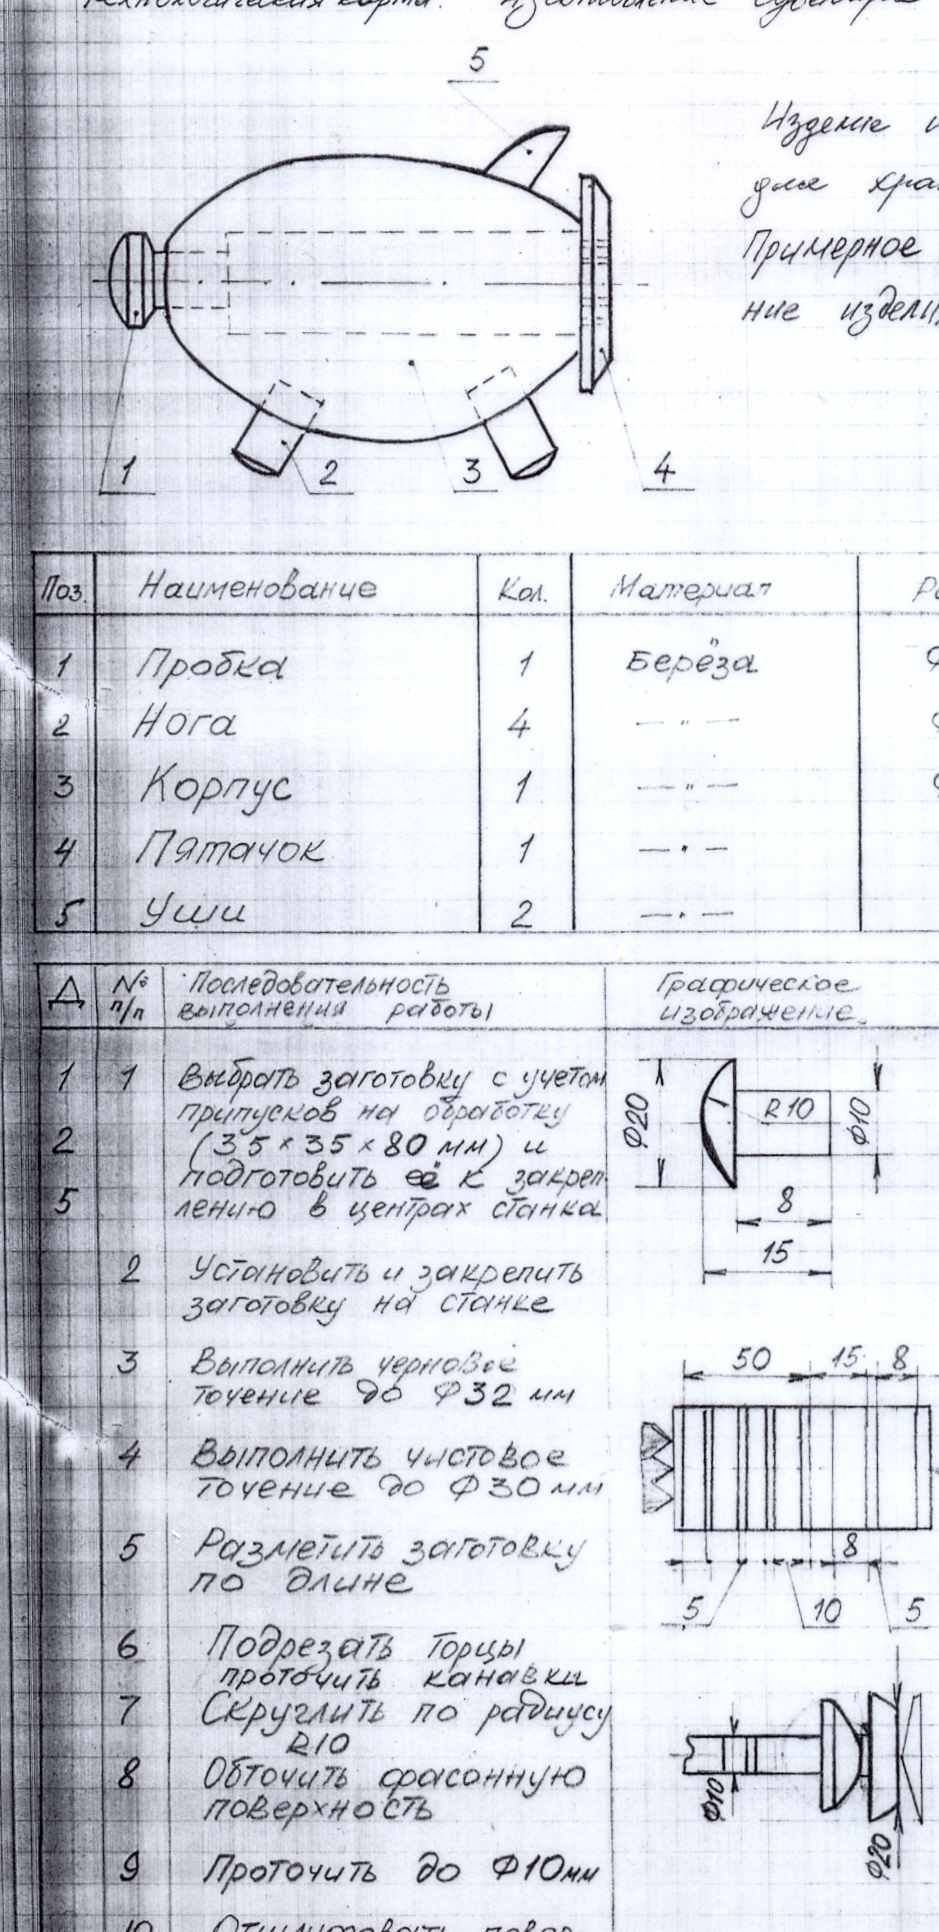 Технологическая карта. Изготовление сувенира
5
Изделие
для
Примерное
ние
1
2
3
4
Поз. Наименование Кол. Материал
1 Пробка 1 Берёза
2 Нога 4 — " —
3 Корпус 1 — " —
4 Пятачок 1 — " —
5 Уши 2 — " —
Д № п/п Последовательность Графическое
выполнения работы изображение
1 1 Выбрать заготовку с учетом
припусков на обработку
2 (35×35×80 мм) и
подготовить её к закреп-
5 лению в центрах станка
Ф20 R10 Ф10
8
15
2 Установить и закрепить
заготовку на станке
3 Выполнить черновое
точение до Ф32 мм
4 Выполнить чистовое
точение до Ф30 мм
50 15 8
5 Разметить заготовку
по длине
8
5 10 5
6 Подрезать торцы
проточить канавки
7 Скруглить по радиусу
R10
8 Обточить фасонную
поверхность
Ф10
Ф20
9 Проточить до Ф10мм
10